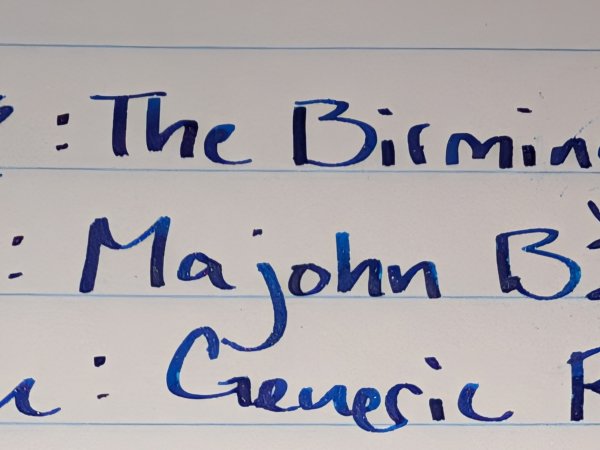 : The Birmin
: Majohn B
: Generic R